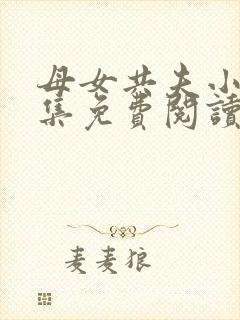 母女共夫小
集免費閱讀
麦麦狼